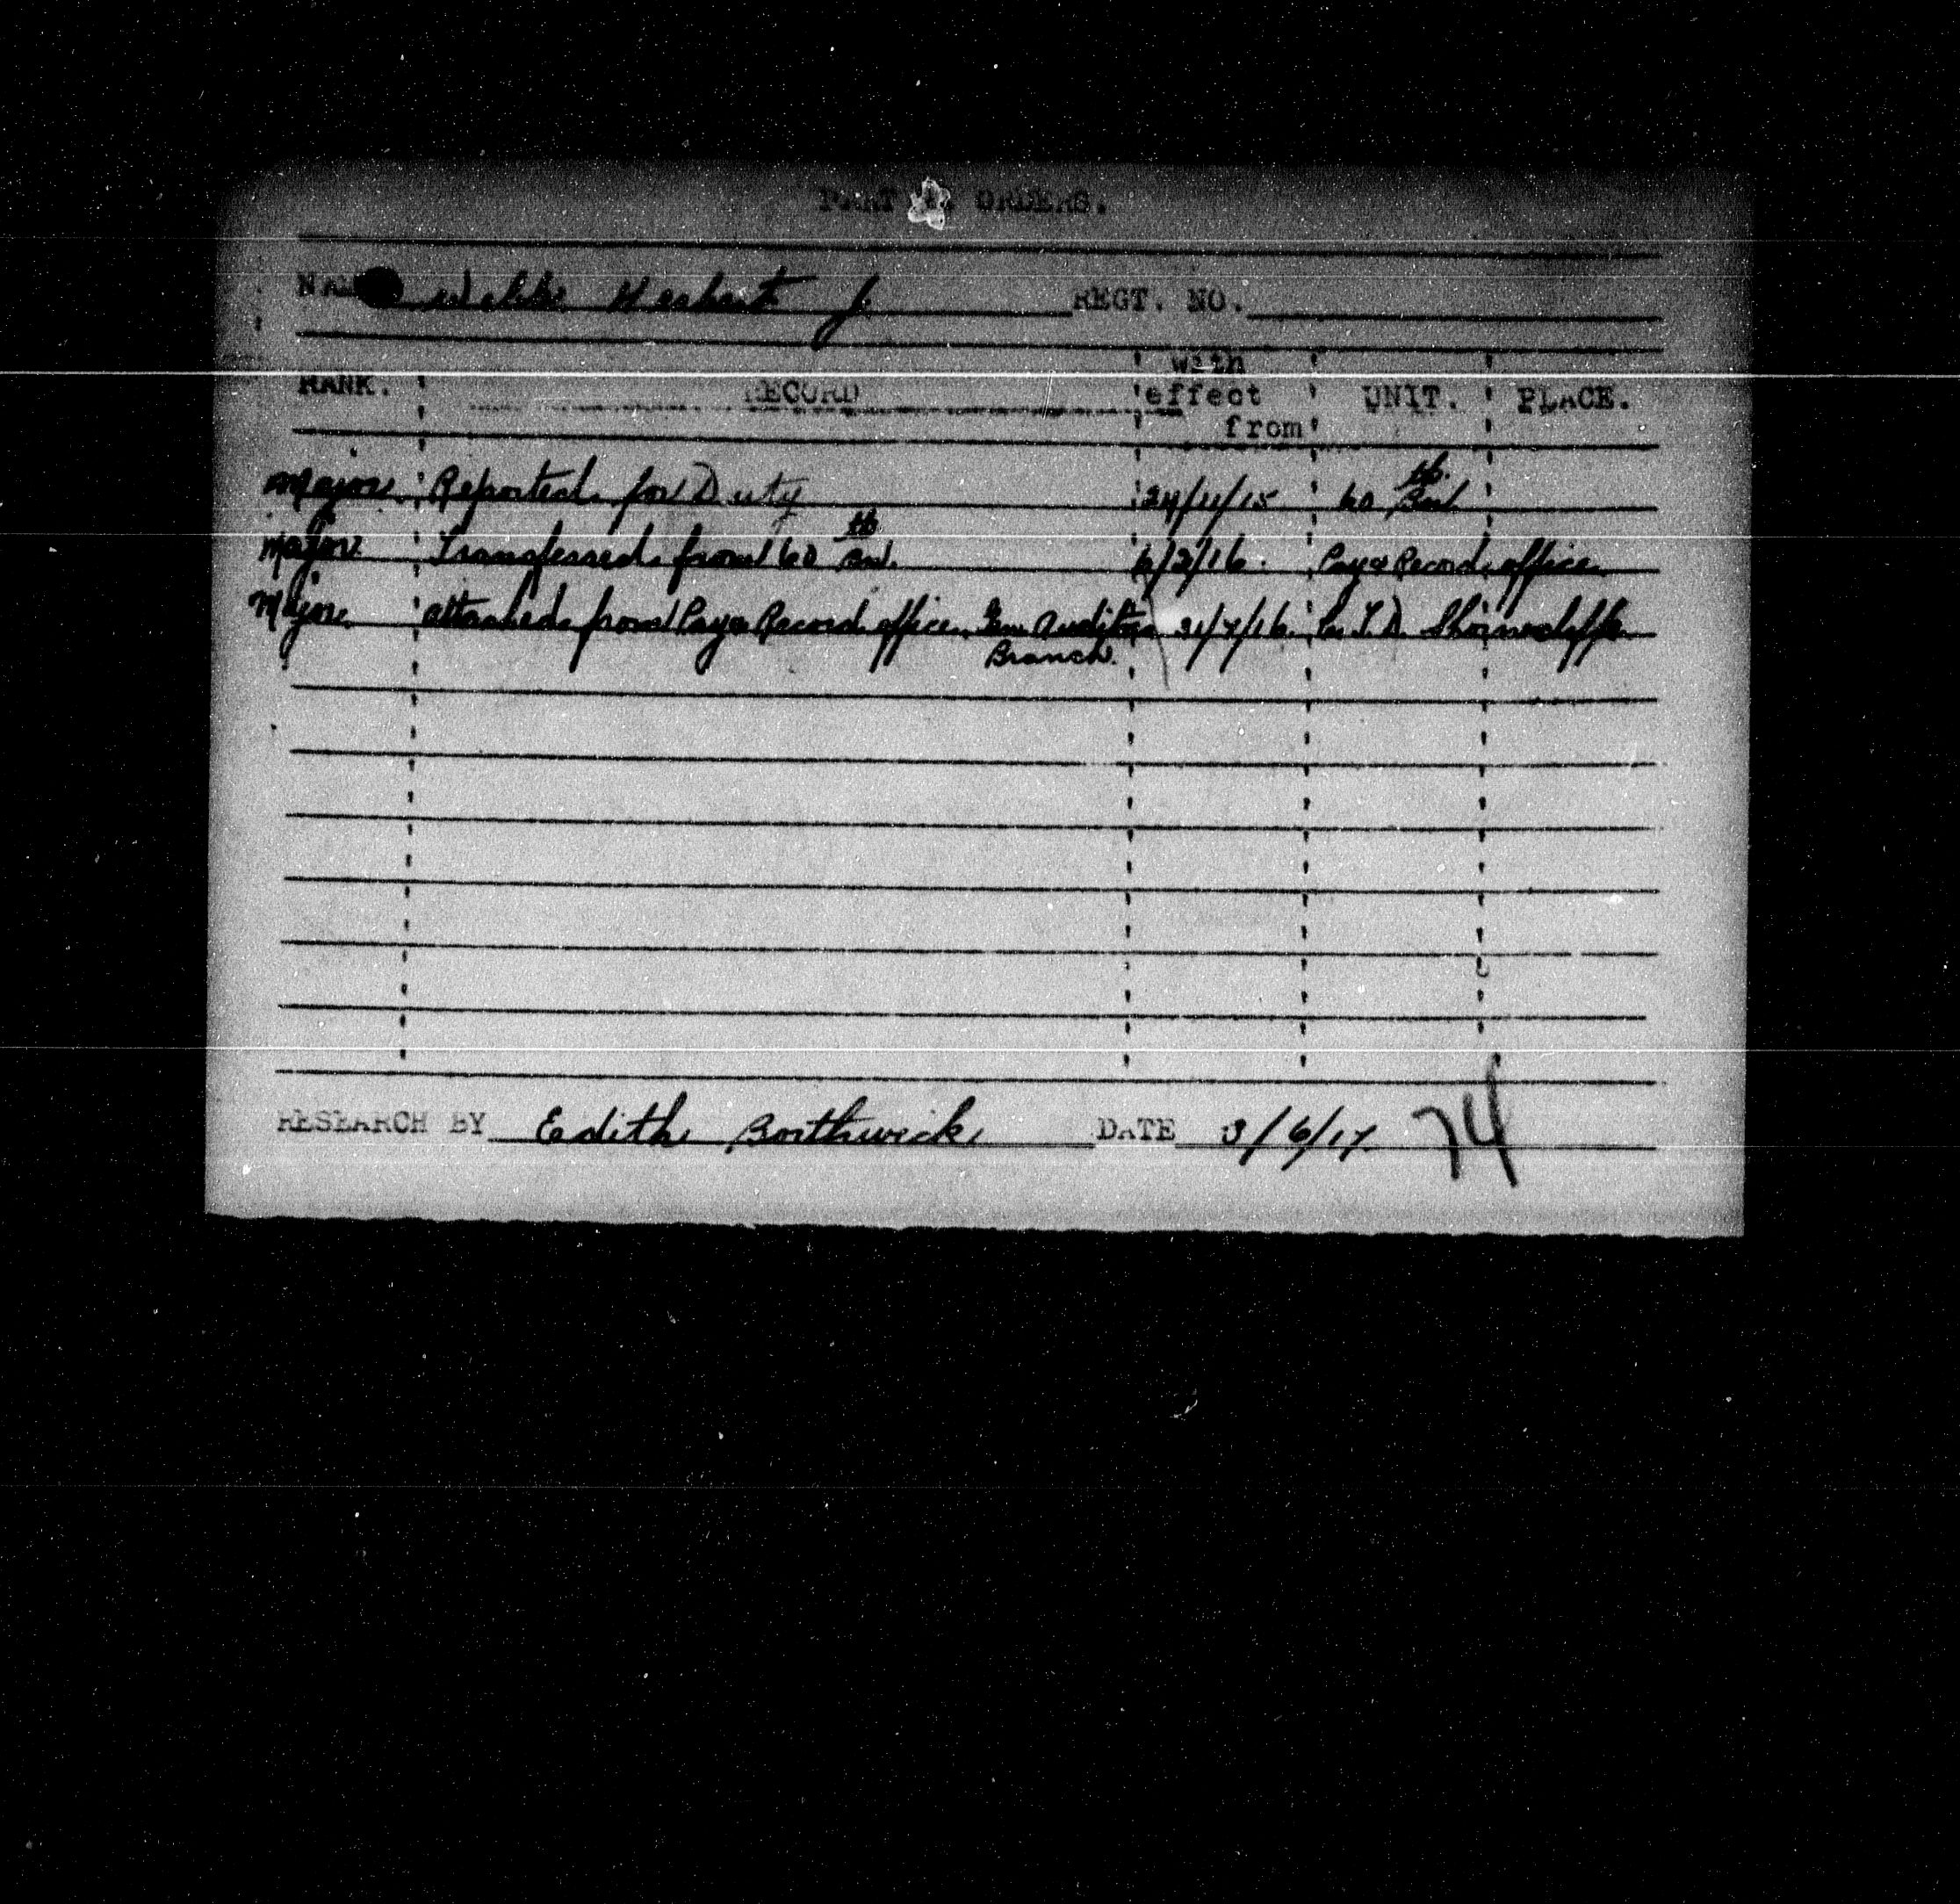 PART ORDERS.
NAME Webb Herbert J REGT. NO.
RANK. RECORD with effect from UNIT. PLACE.
Major Reported for Duty 24/11/15 60th Bn
Major Transferred from 60th Bn. 6/2/16. Pay & Record office
Major attached from Pay & Record office Gen Auditors 31/7/16. C.T.D. Shorncliffe
Branch.
RESEARCH BY Edith Borthwick DATE 3/6/17 74